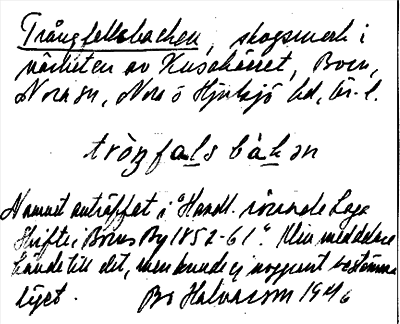 Trångfallsbacken, skogsmark i
närheten av Kusakärret, Born,
Nora sn, Nora o Hjulsjö hd, Ör. l.
tròŋfals bàkən
Namnet anträffat i "Handl. rörande Laga
Skifte i Borns By 1852-61". Min meddelare
kände till det, men kunde ej noggrant bestämma
läget. Bo Halvarson 1946